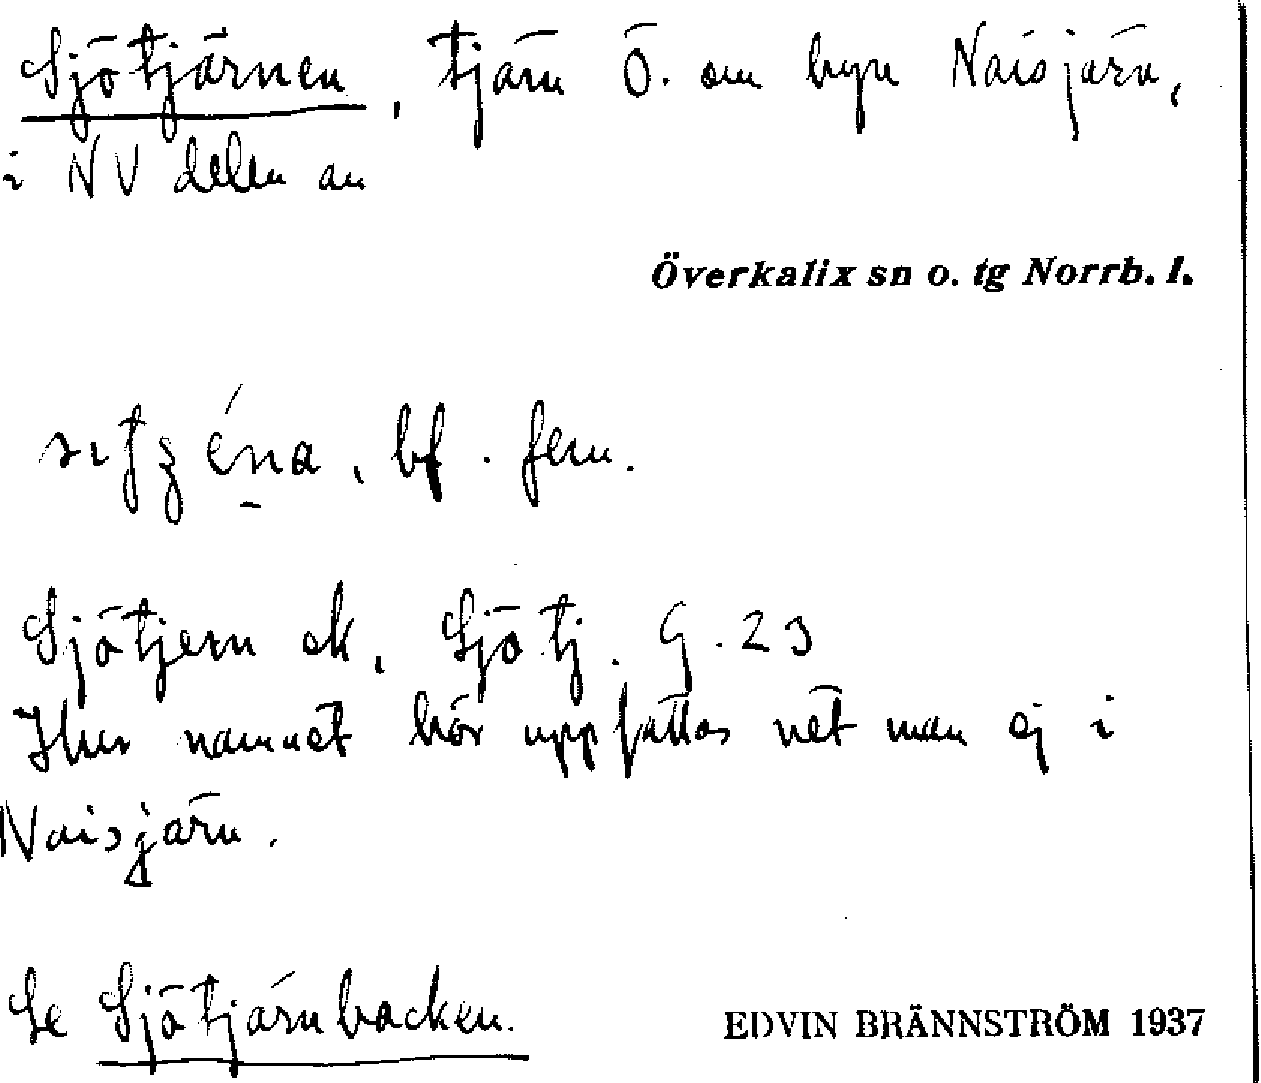 Sjötjärnen, tjärn Ö. om byn Naisjärn,
i NV delen av
Överkalix sn o. tg Norrb. l.
bf. fem.
Sjötjern ek, Sjötj. G. 23
Hur namnet bör uppfattas vet man ej i
Naisjärn.
Se Sjötjärnbacken.
EDVIN BRÄNNSTRÖM 1937